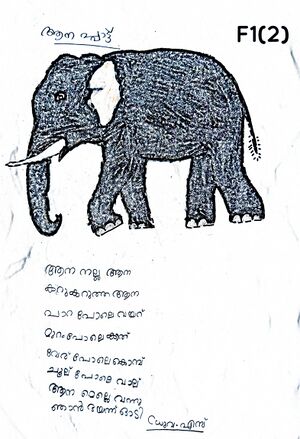 ആന പാട്ട്
F1(2)
ആന നല്ല ആന
കറുകറുത്ത ആന
പാറ പോലെ വയറ്
മുറംപോലെ കാത്
വേര് പോലെ കൊമ്പ്
ചൂല് പോലെ വാല്
ആന മെല്ലെ വന്നു
ഞാൻ ഭയന്ന് ഓടി
ധ്രുവ. എസ്